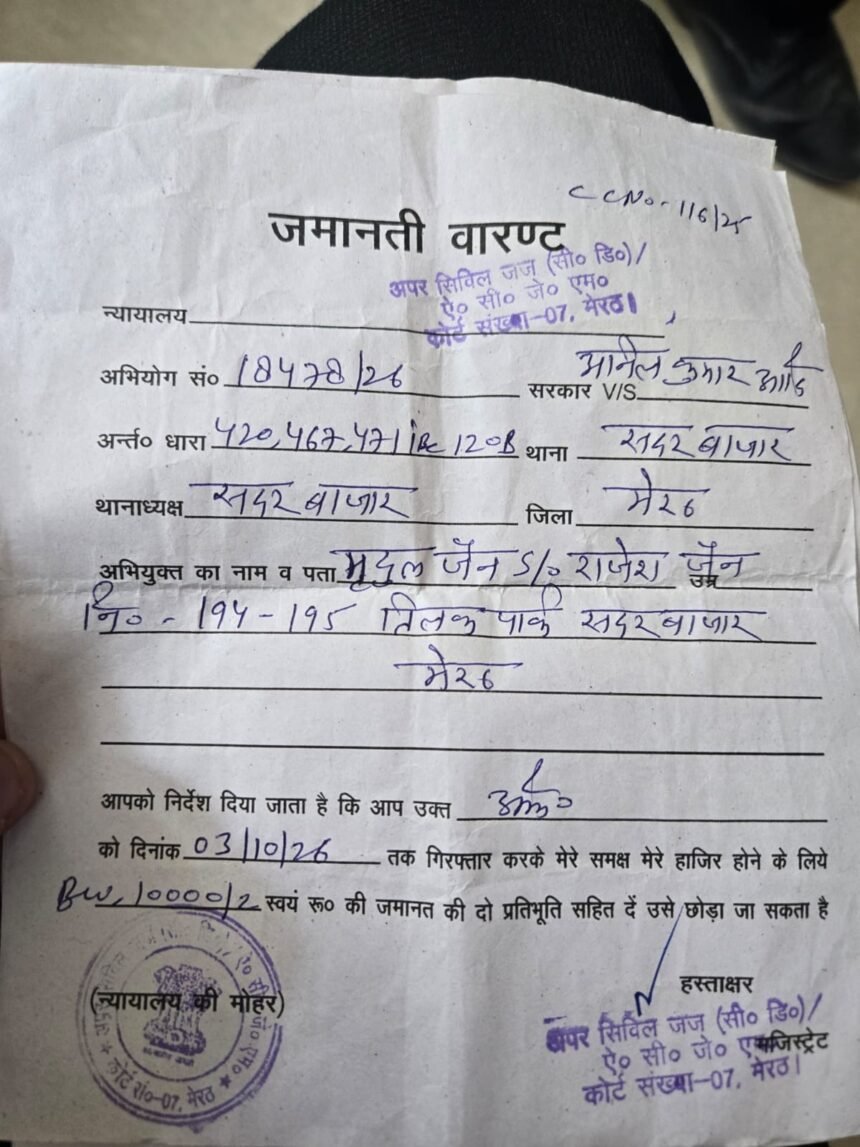 CCNo - 116/25
जमानती वारण्ट
अपर सिविल जज (सी० डि०)/
ऐ० सी० जे० एम०
कोर्ट संख्या-07, मेरठ।
न्यायालय
अभियोग सं० 18478/26 सरकार V/S अनिल कुमार आदि
अर्न्त० धारा 420,467,471 IPC 120B थाना सदर बाजार
थानाध्यक्ष सदर बाजार जिला मेरठ
अभियुक्त का नाम व पता मृदुल जैन S/o राजेश जैन उम्र
नि० - 194-195 तिलक पार्क सदर बाजार
मेरठ
आपको निर्देश दिया जाता है कि आप उक्त
को दिनांक 03/10/26 तक गिरफ्तार करके मेरे समक्ष मेरे हाजिर होने के लिये
BW, 10000/2 स्वयं रू० की जमानत की दो प्रतिभूति सहित दें उसे छोड़ा जा सकता है
(न्यायालय की मोहर)
कोर्ट सं०-07, मेरठ
हस्ताक्षर
अपर सिविल जज (सी० डि०)/
ऐ० सी० जे० एम० मजिस्ट्रेट
कोर्ट संख्या-07, मेरठ।